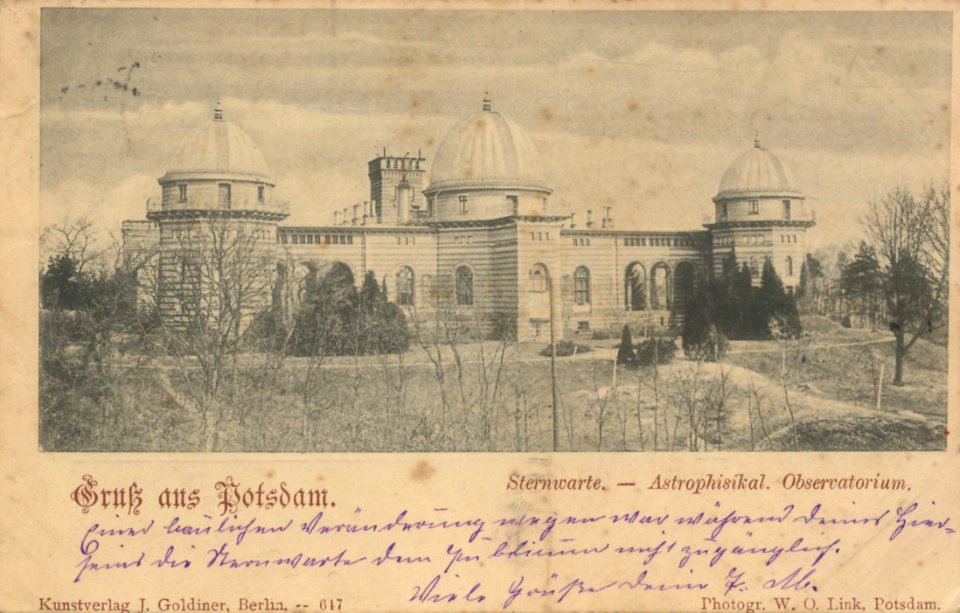 Gruß aus Potsdam.
Sternwarte. — Astrophisikal. Observatorium.
Einer baulichen Veränderung wegen war während deines Hier-
seins die Sternwarte dem Publikum nicht zugänglich.
Viele Grüße deine F. M.
Kunstverlag J. Goldiner, Berlin. -- 647
Photogr. W. O. Link, Potsdam.